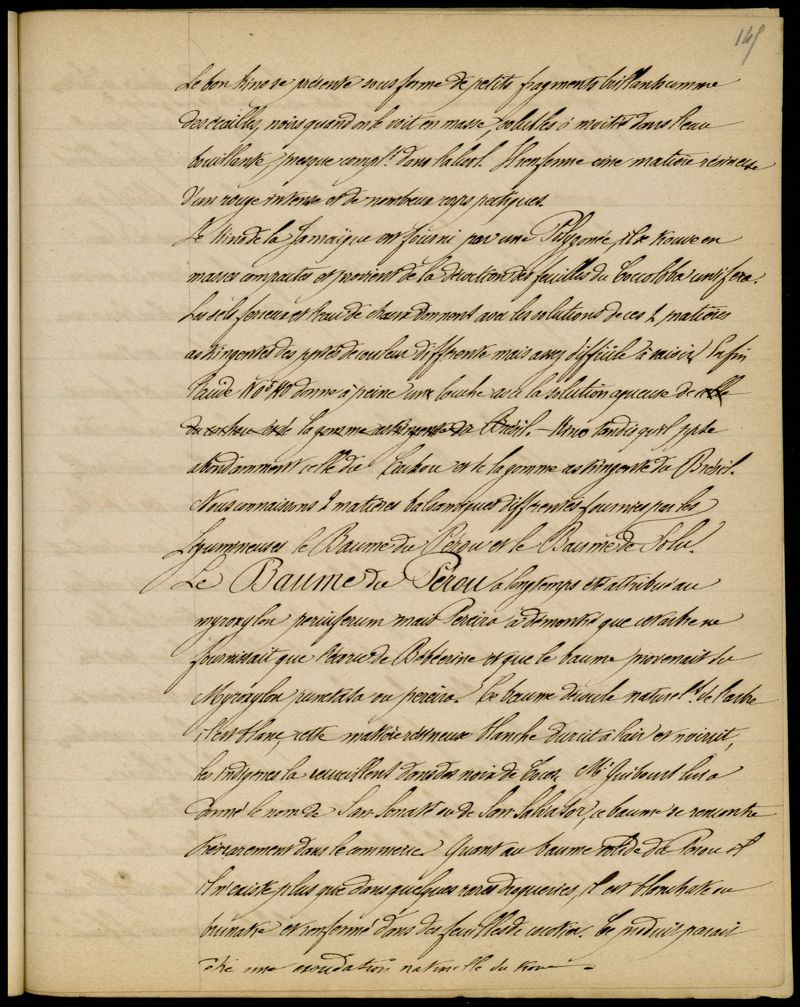 145
Le bon Kino se présente sous forme de petits fragments brillants comme
des écailles, noirs quand on le voit en masse, solubles à moitié dans l'eau
bouillante presque complt. dans l'alcool. Il renferme une matière résineuse
d'un rouge intense et de nombreux corps pectiques.
Le Kino de la Jamaïque est fourni par une Polygonée, il se trouve en
masses compactes et provient de la décoction des feuilles du Coccoloba uvifera.
Les sels ferreux et l'eau de chaux donnent avec les solutions de ces 2 matières
astringentes des pptés de couleur différente mais assez difficile à saisir. Enfin
l'acide donne à peine un louche avec la solution aqueuse de celle
du cachou et de la gomme astringente du Brésil. - Kino tandis qu'il ppte
abondamment celle du Cachou et de la gomme astringente du Brésil.
Nous connaissons 2 matières balsamiques différentes fournies par les
Légumineuses le Baume du Pérou et le Baume de Tolu.
Le Baume du Pérou a longtemps été attribué au
myroxylon peruiferum mais Pereira a démontré que cet arbre ne
fournissait que l'écorce de et que le baume provenait du
Myroxylon punctata ou pereira. Ce baume découle naturellt. de l'arbre
il est blanc, cette matière résineuse blanche durcit à l'air et noircit,
les indigènes la recueillent dans des noix de Coco. Mr. Guibourt lui a
donné le nom de San Sonaté ou de San Salvator, ce baume se rencontre
très rarement dans le commerce. Quant au baume solide du Pérou il
n'existe plus que dans quelques rares drogueries, il est blanchâtre ou
brunâtre et renfermé dans des feuilles de cocotier. Ce produit parait
être une exsudation naturelle du